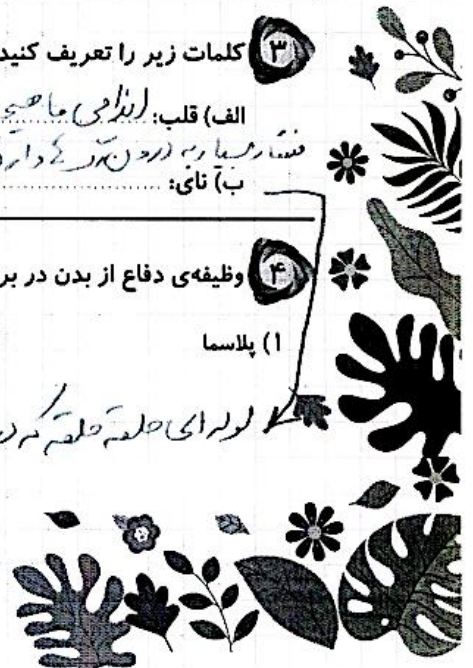 ۳ کلمات زیر را تعریف کنید
الف) قلب: اندامی ماهیچه
فشار بسیار به درون آن‌ها دارد
ب) نای:
۴ وظیفه‌ی دفاع از بدن در بر
۱) پلاسما
لوله‌ای حلقه حلقه که در